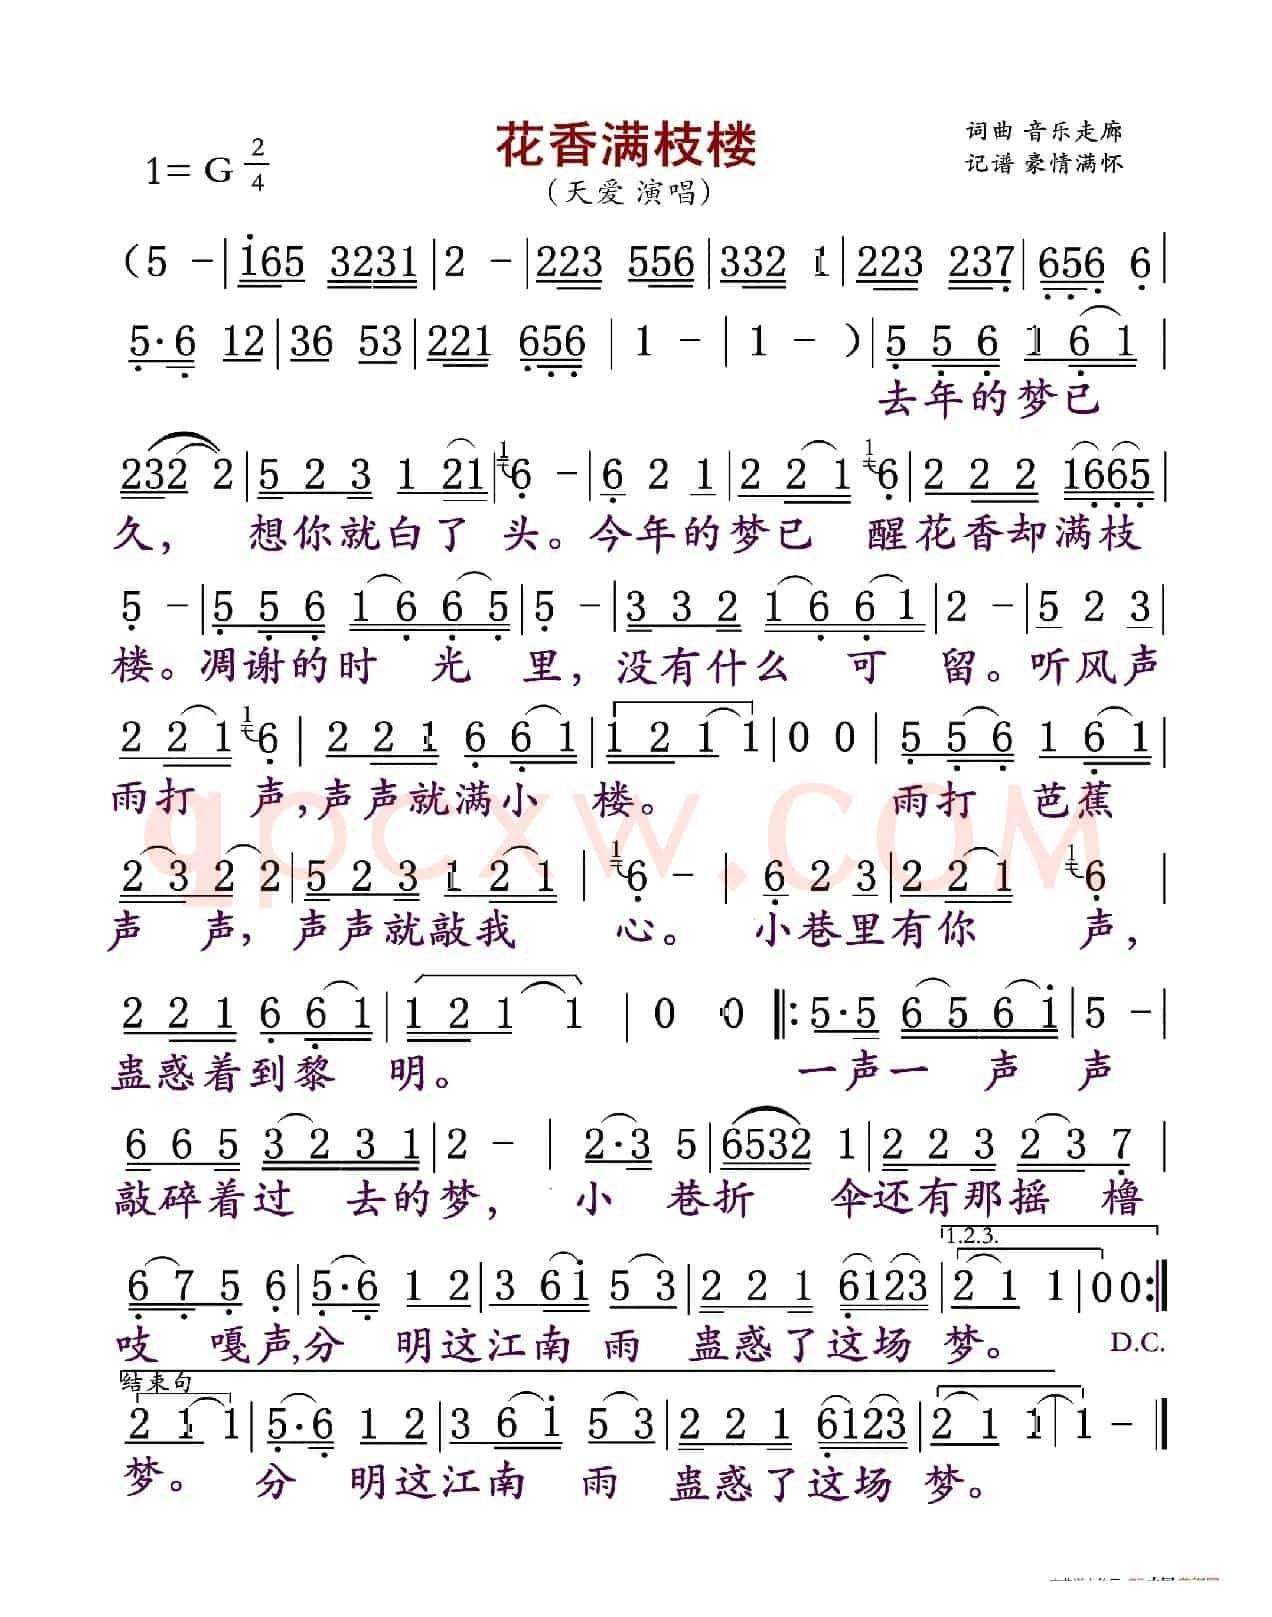 花香满枝楼
词曲 音乐走廊
1= G 2/4
(天爱 演唱)
记谱 豪情满怀
(5 - | 165 3231 | 2 - | 223 556 | 332 1 | 223 237 | 656 6 |
5·6 12 | 36 53 | 221 656 | 1 - | 1 - ) | 5 5 6 1 6 1 |
去年的梦已
232 2 | 5 2 3 1 21 | 1 6 - | 6 2 1 | 2 2 1 1 6 | 2 2 2 1665 |
久， 想你就白了 头。今年的梦已 醒花香却满枝
5 - | 5 5 6 1 6 6 5 | 5 - | 3 3 2 1 6 6 1 | 2 - | 5 2 3 |
楼。凋谢的时 光 里，没有什么 可 留。听风声
2 2 1 1 6 | 2 2 1 6 6 1 | 1 2 1 1 | 0 0 | 5 5 6 1 6 1 |
雨打 声,声声就满小 楼。 雨打 芭蕉
qpcxw.COM
2 3 2 2 | 5 2 3 1 2 1 | 1 6 - | 6 2 3 | 2 2 1 1 6 |
声 声，声声就敲我 心。 小巷里有你 声，
2 2 1 6 6 1 | 1 2 1 1 | 0 0 ‖: 5·5 6 5 6 1 | 5 - |
蛊惑着到黎 明。 一声一 声 声
6 6 5 3 2 3 1 | 2 - | 2·3 5 | 6532 1 | 2 2 3 2 3 7 |
敲碎着过 去的梦， 小 巷折 伞还有那摇 橹
1.2.3.
6 7 5 6 | 5·6 1 2 | 3 6 1 5 3 | 2 2 1 6123 | 2 1 1 | 0 0 :‖
吱 嘎声,分 明这江南 雨 蛊惑了这场 梦。 D.C.
结束句
2 1 1 | 5·6 1 2 | 3 6 1 5 3 | 2 2 1 6123 | 2 1 1 | 1 - ‖
梦。 分 明这江南 雨 蛊惑了这场 梦。